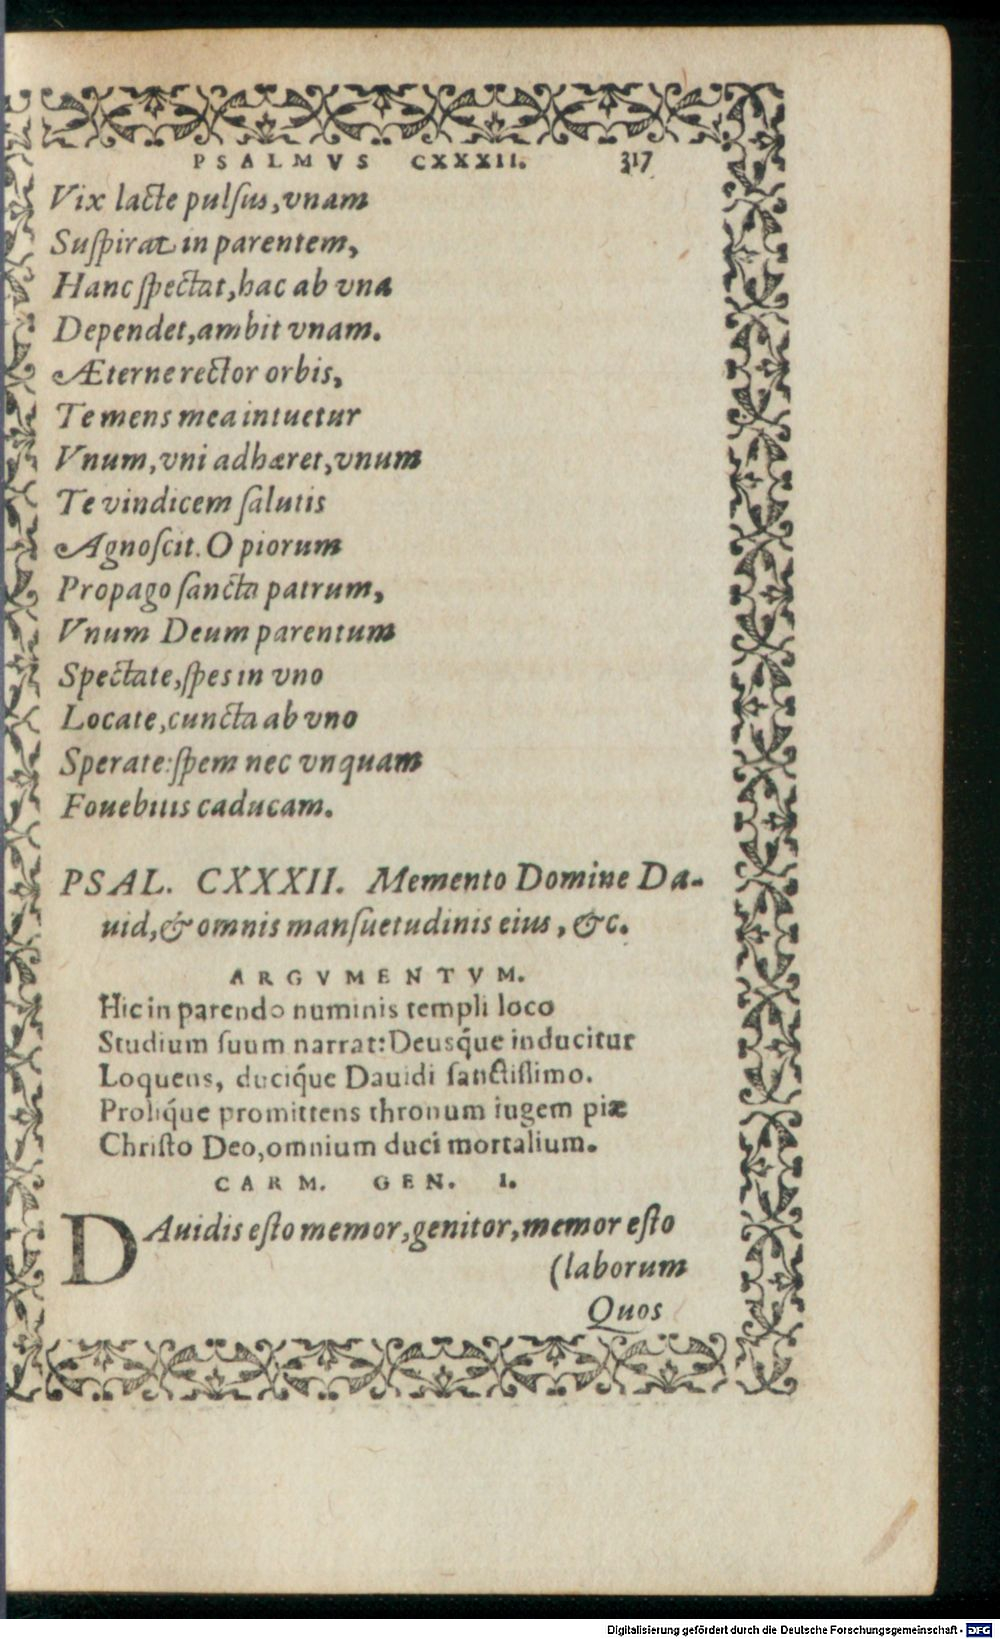 PSALMVS CXXXII. 317
Vix lacte pulſus, vnam
Suſpirat in parentem,
Hanc ſpectat, hac ab vna
Dependet, ambit vnam.
Æterne rector orbis,
Te mens mea intuetur
Vnum, vni adhæret, vnum
Te vindicem ſalutis
Agnoſcit. O piorum
Propago ſancta patrum,
Vnum Deum parentum
Spectate, ſpes in vno
Locate, cuncta ab vno
Sperate: ſpem nec vnquam
Fouebitis caducam.
PSAL. CXXXII. Memento Domine Da-
uid, & omnis manſuetudinis eius, &c.
ARGVMENTVM.
Hic in parendo numinis templi loco
Studium ſuum narrat: Deusq́ue inducitur
Loquens, duciq́ue Dauidi ſanctiſſimo.
Proliq́ue promittens thronum iugem piæ
Chriſto Deo, omnium duci mortalium.
CARM. GEN. I.
DAuidis eſto memor, genitor, memor eſto
(laborum
Quos
Digitalisierung gefördert durch die Deutsche Forschungsgemeinschaft - DFG